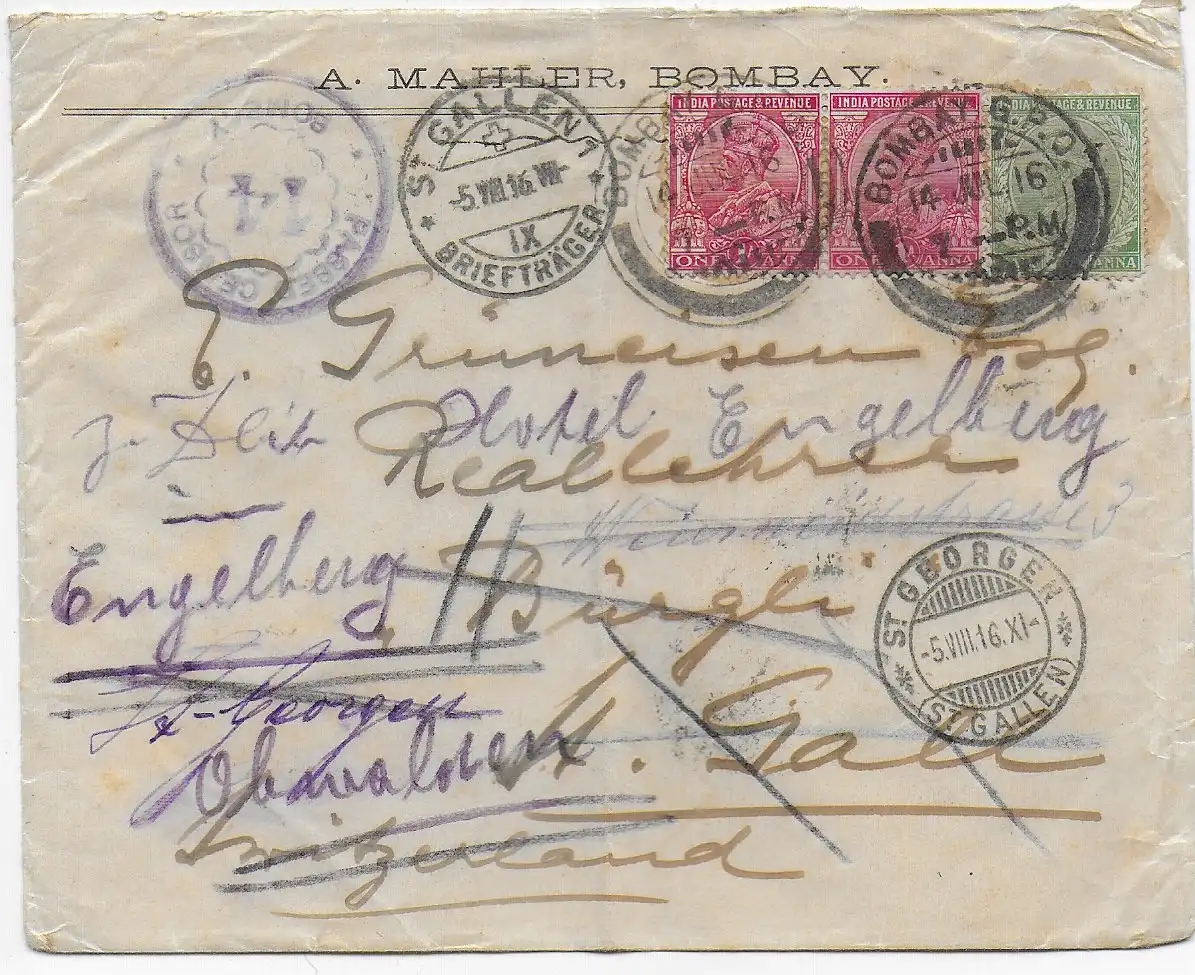 A. MAHLER, BOMBAY.
BOMBAY
PASSED CENSOR
14
ST GALLEN 1
-5.VIII.16.VII-
IX
BRIEFTRÄGER
INDIA POSTAGE & REVENUE
ONE ANNA
INDIA POSTAGE & REVENUE
ONE ANNA
INDIA POSTAGE & REVENUE
ANNA
BOMBAY G.P.O
14 JUL 16
P.M
E. Grüneisen Esq.
z. Zeit Hotel Engelberg
Reallehrer
in
Engelberg
Bürgli
ST GEORGEN
-5.VIII.16.XI-
(ST GALLEN)
St-Georgen
St. Gall
Obwalden
Switzerland